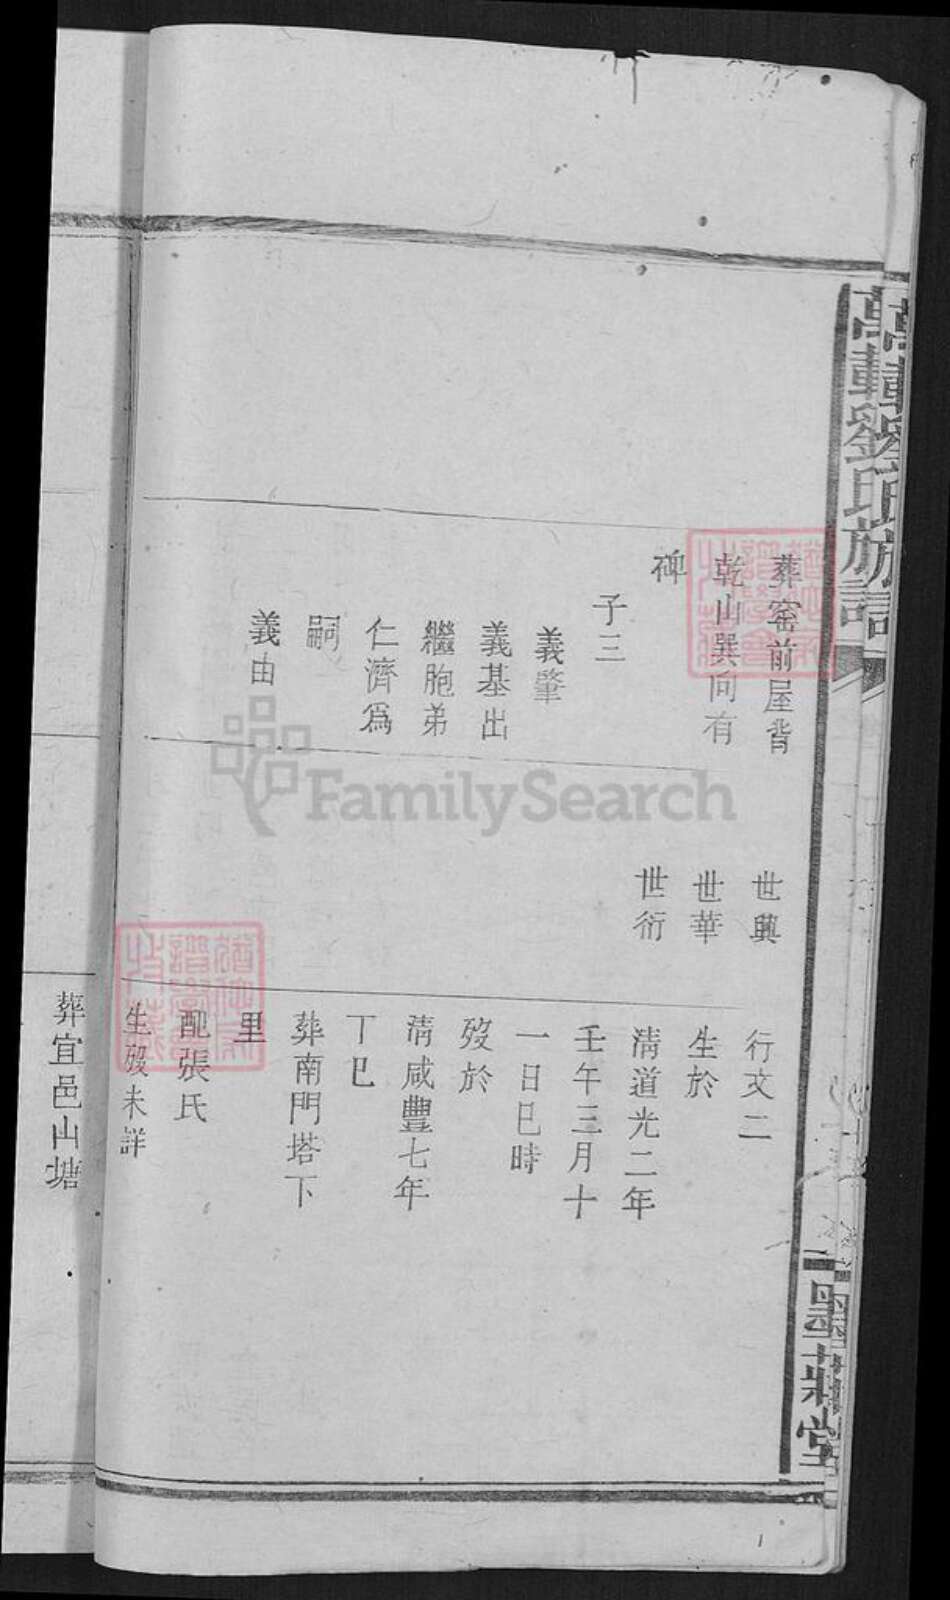 萬載劉氏族譜
墨莊堂
葬窑前屋背
乾山巽向有
碑
子三
義肇
義基出
繼胞弟
仁濟爲
嗣
義由
世興
世華
世衍
行文二
生於
清道光二年
壬午三月十
一日巳時
歿於
清咸豐七年
丁巳
葬南門塔下
里
配張氏
生歿未詳
葬宜邑山塘
FamilySearch